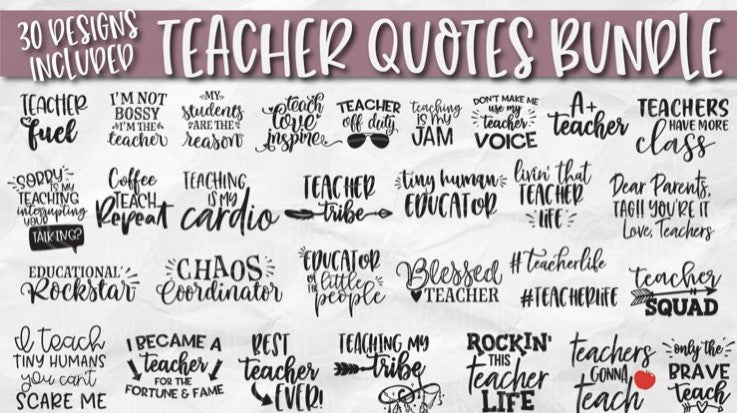 30 DESIGNS
INCLUDED
TEACHER QUOTES BUNDLE
TEACHER
fuel
I'M NOT
BOSSY
I'M THE
teacher
MY
students
ARE THE
reason
teach
love
inspire
TEACHER
off duty
teaching
is my
JAM
DON'T MAKE ME
use my
teacher
VOICE
A+
teacher
TEACHERS
HAVE MORE
class
SORRY
IS MY
TEACHING
interrupting
YOUR
TALKING?
Coffee
TEACH
Repeat
TEACHING
IS MY
cardio
TEACHER
tribe
tiny human
EDUCATOR
livin' that
TEACHER
life
Dear Parents,
TAG!! YOU'RE IT
Love, Teachers
EDUCATIONAL
Rockstar
CHAOS
Coordinator
EDUCATOR
OF THE
little
people
Blessed
TEACHER
#teacherlife
#TEACHERlife
teacher
SQUAD
I teach
TINY HUMANS
you can't
SCARE ME
I BECAME A
teacher
FOR THE
FORTUNE & FAME
BEST
teacher
EVER!
TEACHING MY
tribe
ROCKIN'
THIS
teacher
LIFE
teachers
GONNA
teach
only the
BRAVE
teach